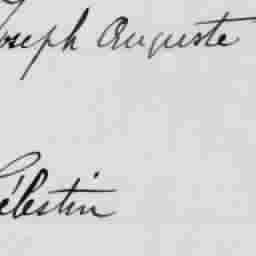 Joseph Auguste
Célestin